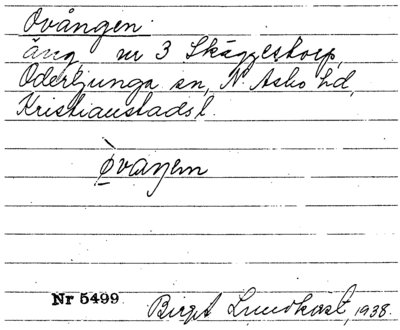 Ovången
äng nr 3 Skäggestorp,
Oderljunga sn, N. Åsbo hd,
Kristianstads l.
Òvaŋen
Nr 5499
Birgit Lundkvist, 1938.